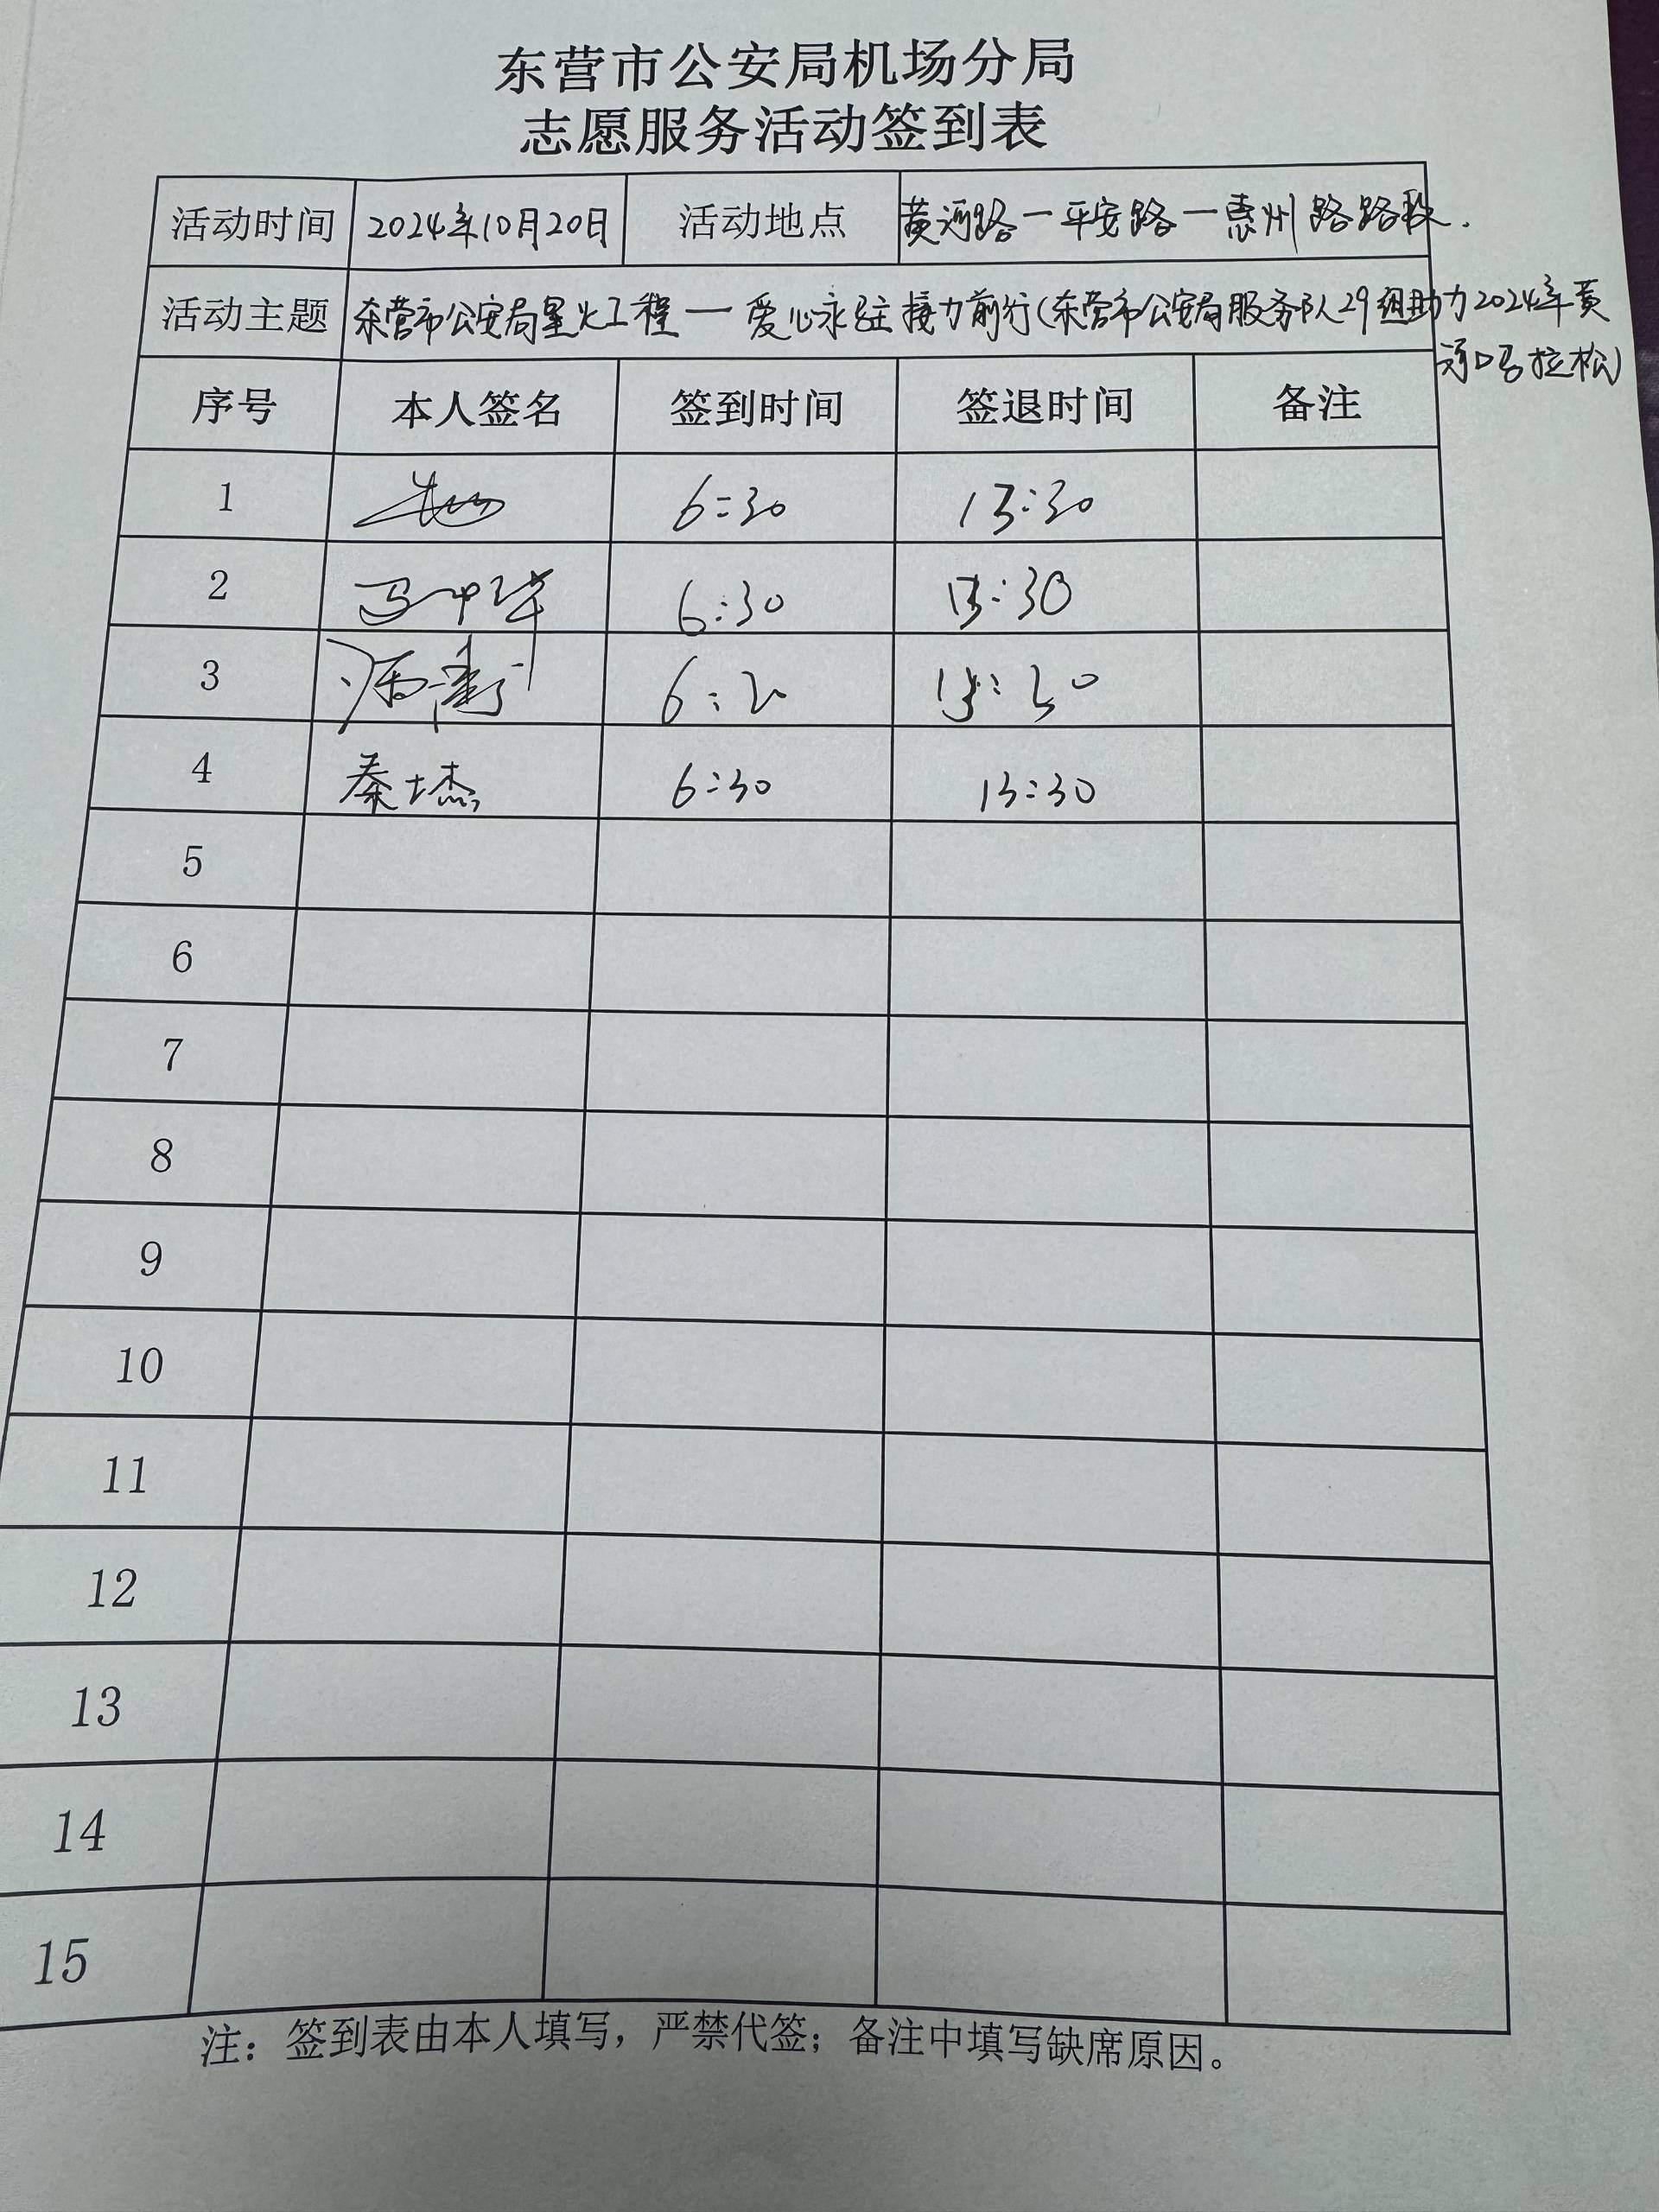 东营市公安局机场分局
志愿服务活动签到表
活动时间 2024年10月20日 活动地点 黄河路一平安路一惠州路路段.
活动主题 东营市公安局星火工程一爱心永驻接力前行(东营市公安局服务队29组助力2024年黄
河口马拉松)
序号 本人签名 签到时间 签退时间 备注
1 6:30 13:30
2 马中华 6:30 13:30
3
4 秦士杰 6:30 13:30
5
6
7
8
9
10
11
12
13
14
15
注：签到表由本人填写，严禁代签；备注中填写缺席原因。